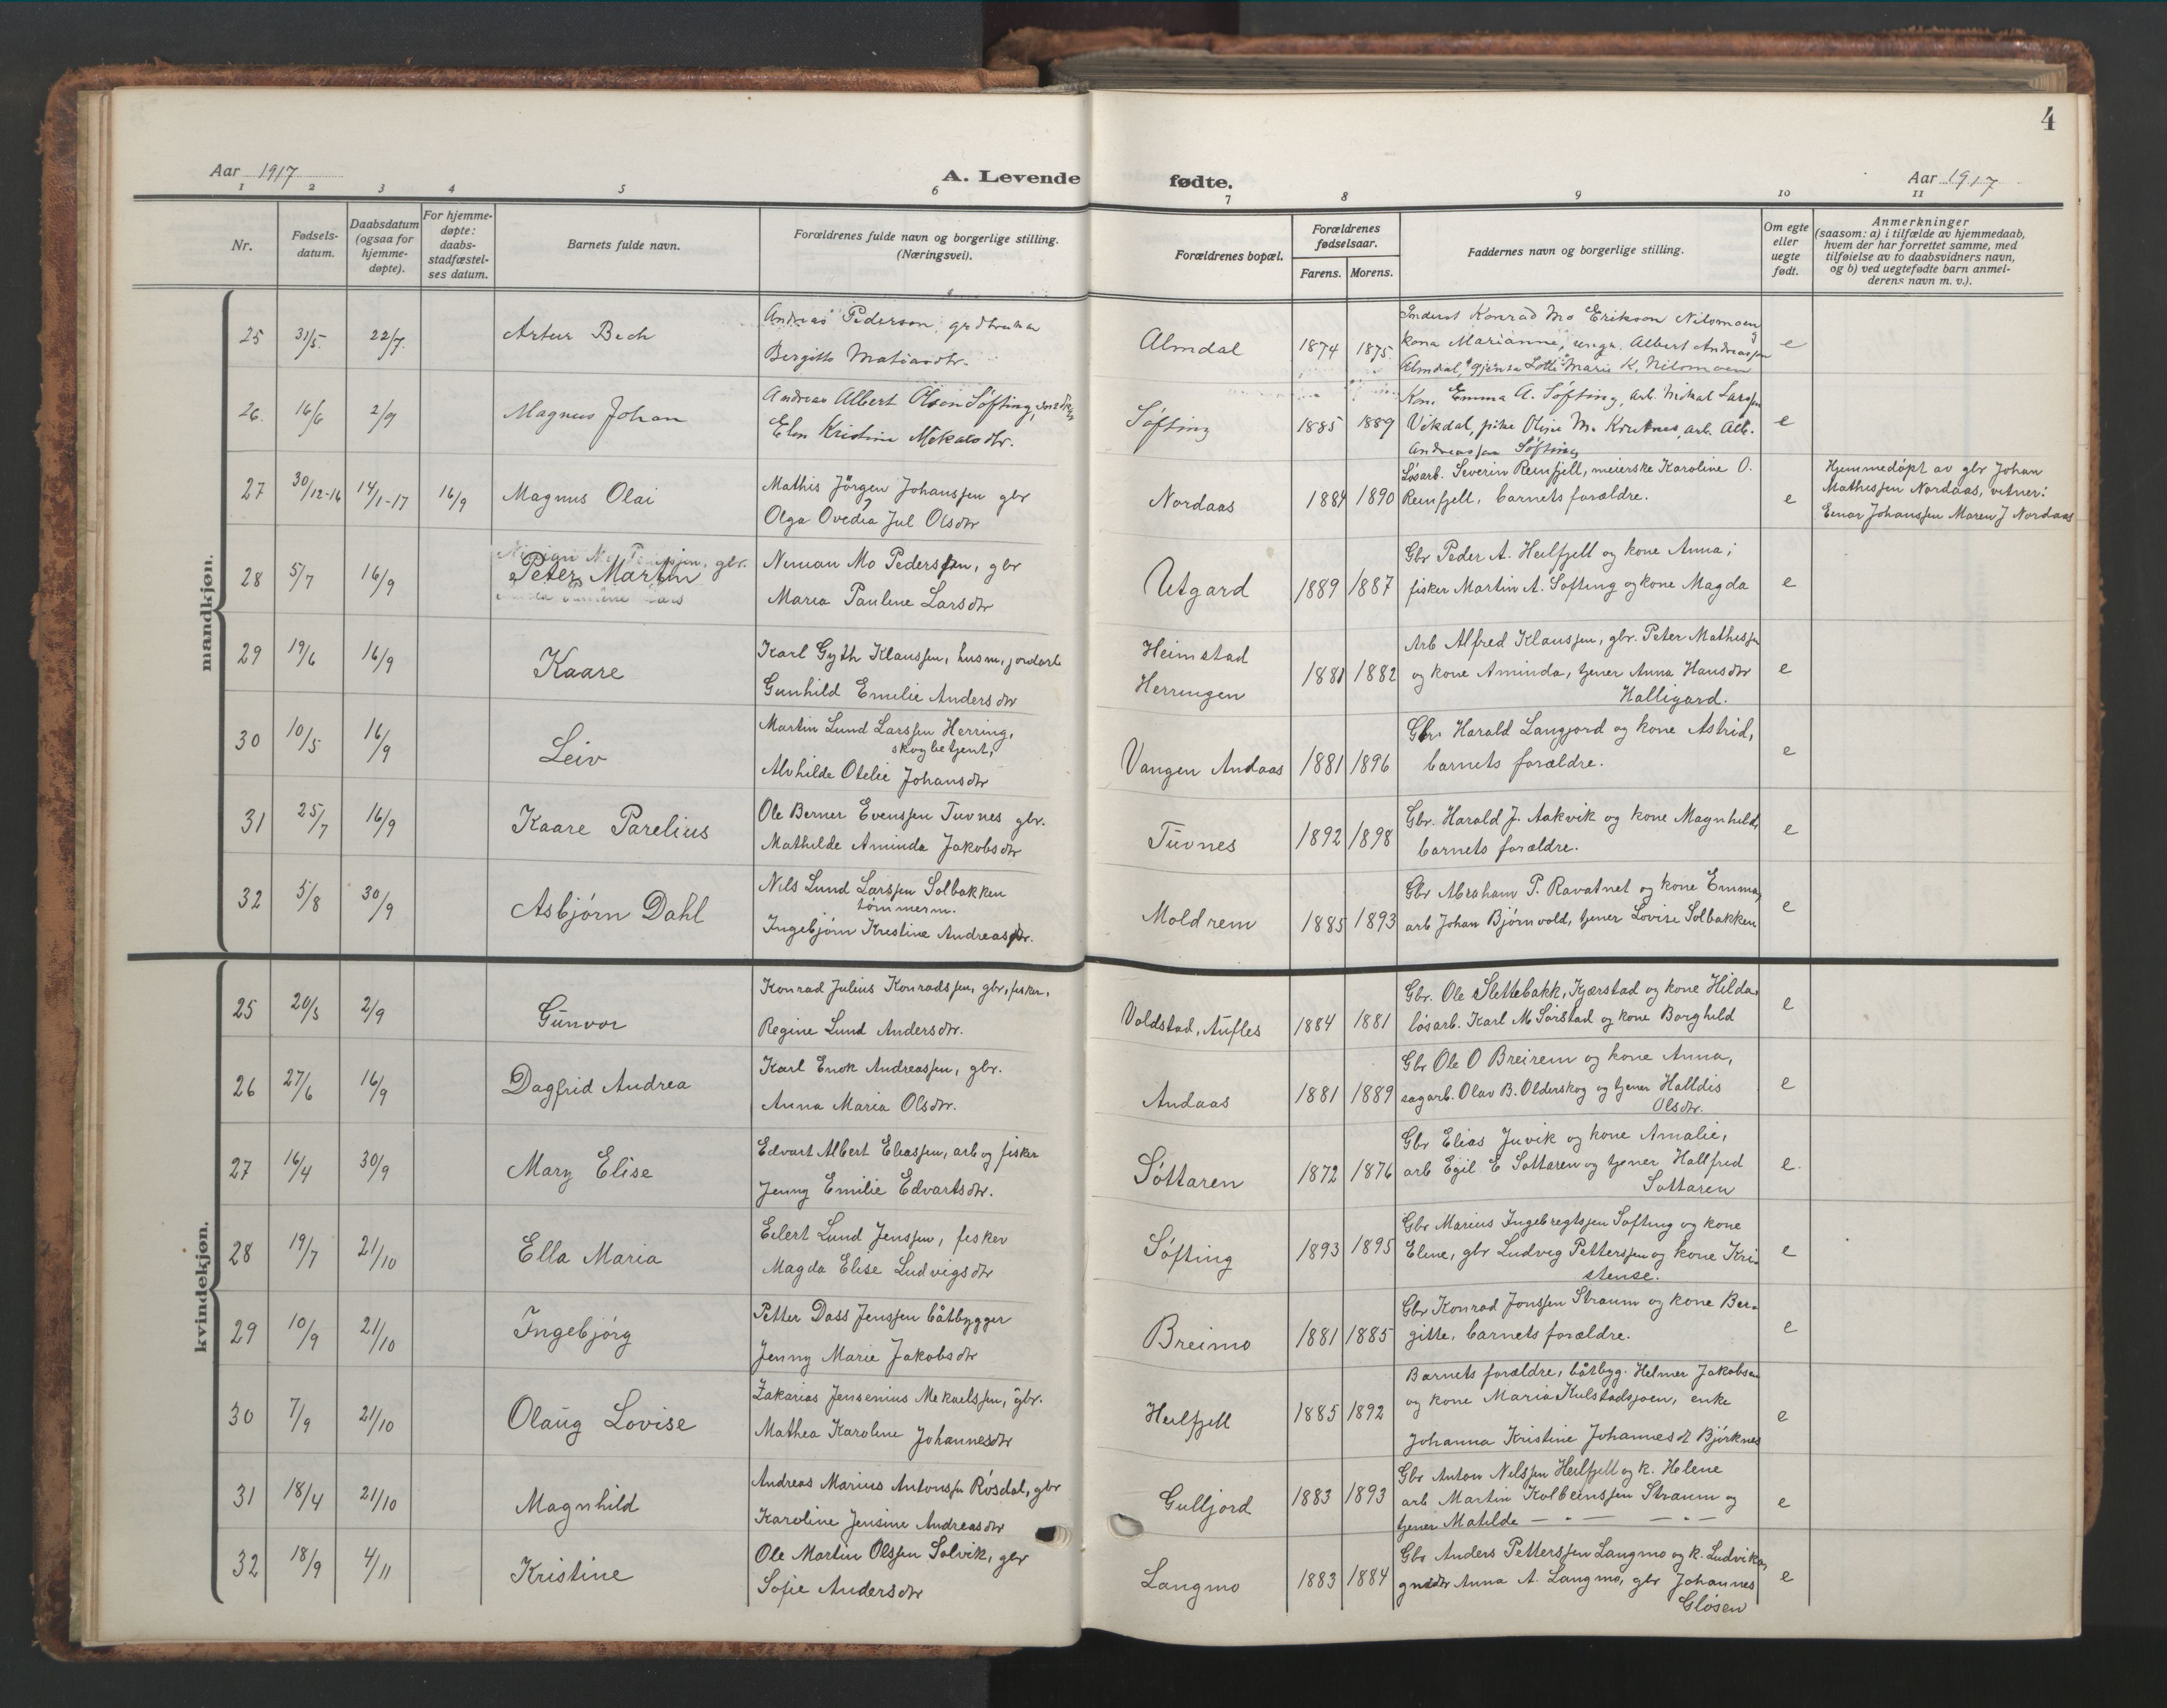 4
Aar 1917
A. Levende fødte.
Aar 1917
1 2 3 4 5 6 7 8 9 10 11
Nr.
Fødsels-
datum.
Daabsdatum
(ogsaa for
hjemme-
døpte).
For hjemme-
døpte:
daabs-
stadfæstel-
ses datum.
Barnets fulde navn.
Forældrenes fulde navn og borgerlige stilling.
(Næringsvei).
Forældrenes bopæl.
Forældrenes
fødselsaar.
Farens. Morens.
Faddernes navn og borgerlige stilling.
Om egte
eller
uegte
født.
Anmerkninger
(saasom: a) i tilfælde av hjemmedaab,
hvem der har forrettet samme, med
tilføielse av to daabsvidners navn,
og b) ved uegtefødte barn anmel-
derens navn m. v.).
mandkjøn.
25 31/5 22/7 Artur Bech
Andreas Pederson, grdbruker
Bergitte Matiasdtr.
Almdal 1874 1875
Inderst Konrad Mo Erikson Nilsmoen
kona Marianne, ungk. Albert Andreassen
Almdal, gjenta Lotte Marie K. Nilsmoen
e
26. 16/6 2/9 Magnus Johan
Andreas Albert Olson Søfting,
Elen Kristine Mikalsdtr.
Søfting 1885 1889
Kone Emma A. Søfting, arb. Mikal Larssen
Vikdal, pike Oline M. Krutnes, arb. Alb.
Andreassen Søfting
e
27 30/12-16 14/1-17 16/9 Magnus Olai
Mathis Jörgen Johanssen gbr
Olga Ovedia Jul Olsdtr
Nordaas 1884 1890
Løsarb. Severin Remfjell, meierske Karoline O.
Remfjell, barnets forældre.
e
Hjemmedöpt av gbr Johan
Mathissen Nordaas, vitner:
Einar Johanssen Maren J Nordaas
28 5/7 16/9 Peter Martin
Nimian Mo Pederssen, gbr
Maria Pauline Larsdtr
Utgard 1889 1887
Gbr Peder A. Heilfjell og kone Anna;
fisker Martin A. Søfting og kone Magda
e
29 19/6 16/9 Kaare
Karl Gyth Klaussen, husm, jordarb
Gunhild Emilie Andersdtr
Heimstad
Herringen
1881 1882
Arb Alfred Klaussen, gbr. Peter Mathissen
og kone Aminda, tjener Anna Hansdtr
Halligard.
e
30 10/5 16/9 Leiv
Martin Lund Larssen Herring,
skogbetjent,
Alvhilde Otelie Johansdtr
Vangen Andaas 1881 1896
Gbr. Harald Langjord og kone Astrid,
barnets forældre.
e
31 25/7 16/9 Kaare Parelius
Ole Berner Evenssen Tuvnes gbr.
Mathilde Aminda Jakobsdtr
Tuvnes 1892 1898
Gbr. Harald J. Aakvik og kone Magnhild,
barnets forældre.
e
32 5/8 30/9 Asbjørn Dahl
Nils Lund Larssen Solbakken
tømmerm.
Ingebjørn Kristine Andreasdtr.
Moldrem 1885 1893
Gbr Abraham P. Ravatnet og kone Emma,
arb Johan Bjørnvold, tjener Lovise Solbakken
e
kvindekjøn.
25 20/5 2/9 Gunvor
Konrad Julius Konradssen, gbr, fisker,
Regine Lund Andersdtr.
Voldstad, Aufles 1884 1881
Gbr. Ole Slettebakk, Kjærstad og kone Hilda,
løsarb. Karl M Sørstad og kone Borghild
e
26 27/6 16/9 Dagfrid Andrea
Karl Enok Andreassen, gbr.
Anna Maria Olsdtr.
Andaas 1881 1889
Gbr Ole O Breirem og kone Anna,
sagarb. Olav B. Olderskog og tjener Halldis
Olsdtr.
e
27 16/4 30/9 Mary Elise
Edvart Albert Eliassen, arb og fisker
Jenny Emilie Edvartsdtr.
Søttaren 1872 1876
Gbr Elias Juvik og kone Amalie,
arb Egil E Sottaren og tjener Hallfred
Sottaren
e.
28 19/7 21/10 Ella Maria
Eilert Lund Jenssen, fisker
Magda Elise Ludvigsdtr
Søfting 1893 1895
Gbr Marius Ingebregtsen Søfting og kone
Eline, gbr Ludvig Petterssen og kone Kri-
stense.
e
29 10/9 21/10 Ingebjørg
Petter Dass Jenssen båtbygger
Jenny Marie Jakobsdtr
Breimo 1881 1885
Gbr Konrad Jonssen Straum og kone Ber-
gitte, barnets forældre.
e
30 7/9 21/10 Olaug Lovise
Zakarias Jensenius Mekaelssen, gbr.
Mathea Karoline Johannesdtr
Heilfjell 1885 1892
Barnets forældre, båtbyg. Helmer Jakobsen
og kone Maria Kulstadsjøen, enke
Johanna Kristine Johannesdt Björknes
e
31 18/4 21/10 Magnhild
Andreas Marius Antonssen Røsdal, gbr
Karoline Jensine Andreasdtr
Gulljord 1883 1893
Gbr Anton Nilssen Heilfjell og k. Helene
arb Martin Kolbeinssen Straum og
tjener Matilde — " — — " —
e
32 18/9 4/11 Kristine
Ole Martin Olssen Solvik, gbr
Sofie Andersdtr
Langmo 1883 1884
Gbr Anders Petterssen Langmo og k. Ludvika,
Anna A. Langmo, gbr Johannes
Gløsen
e